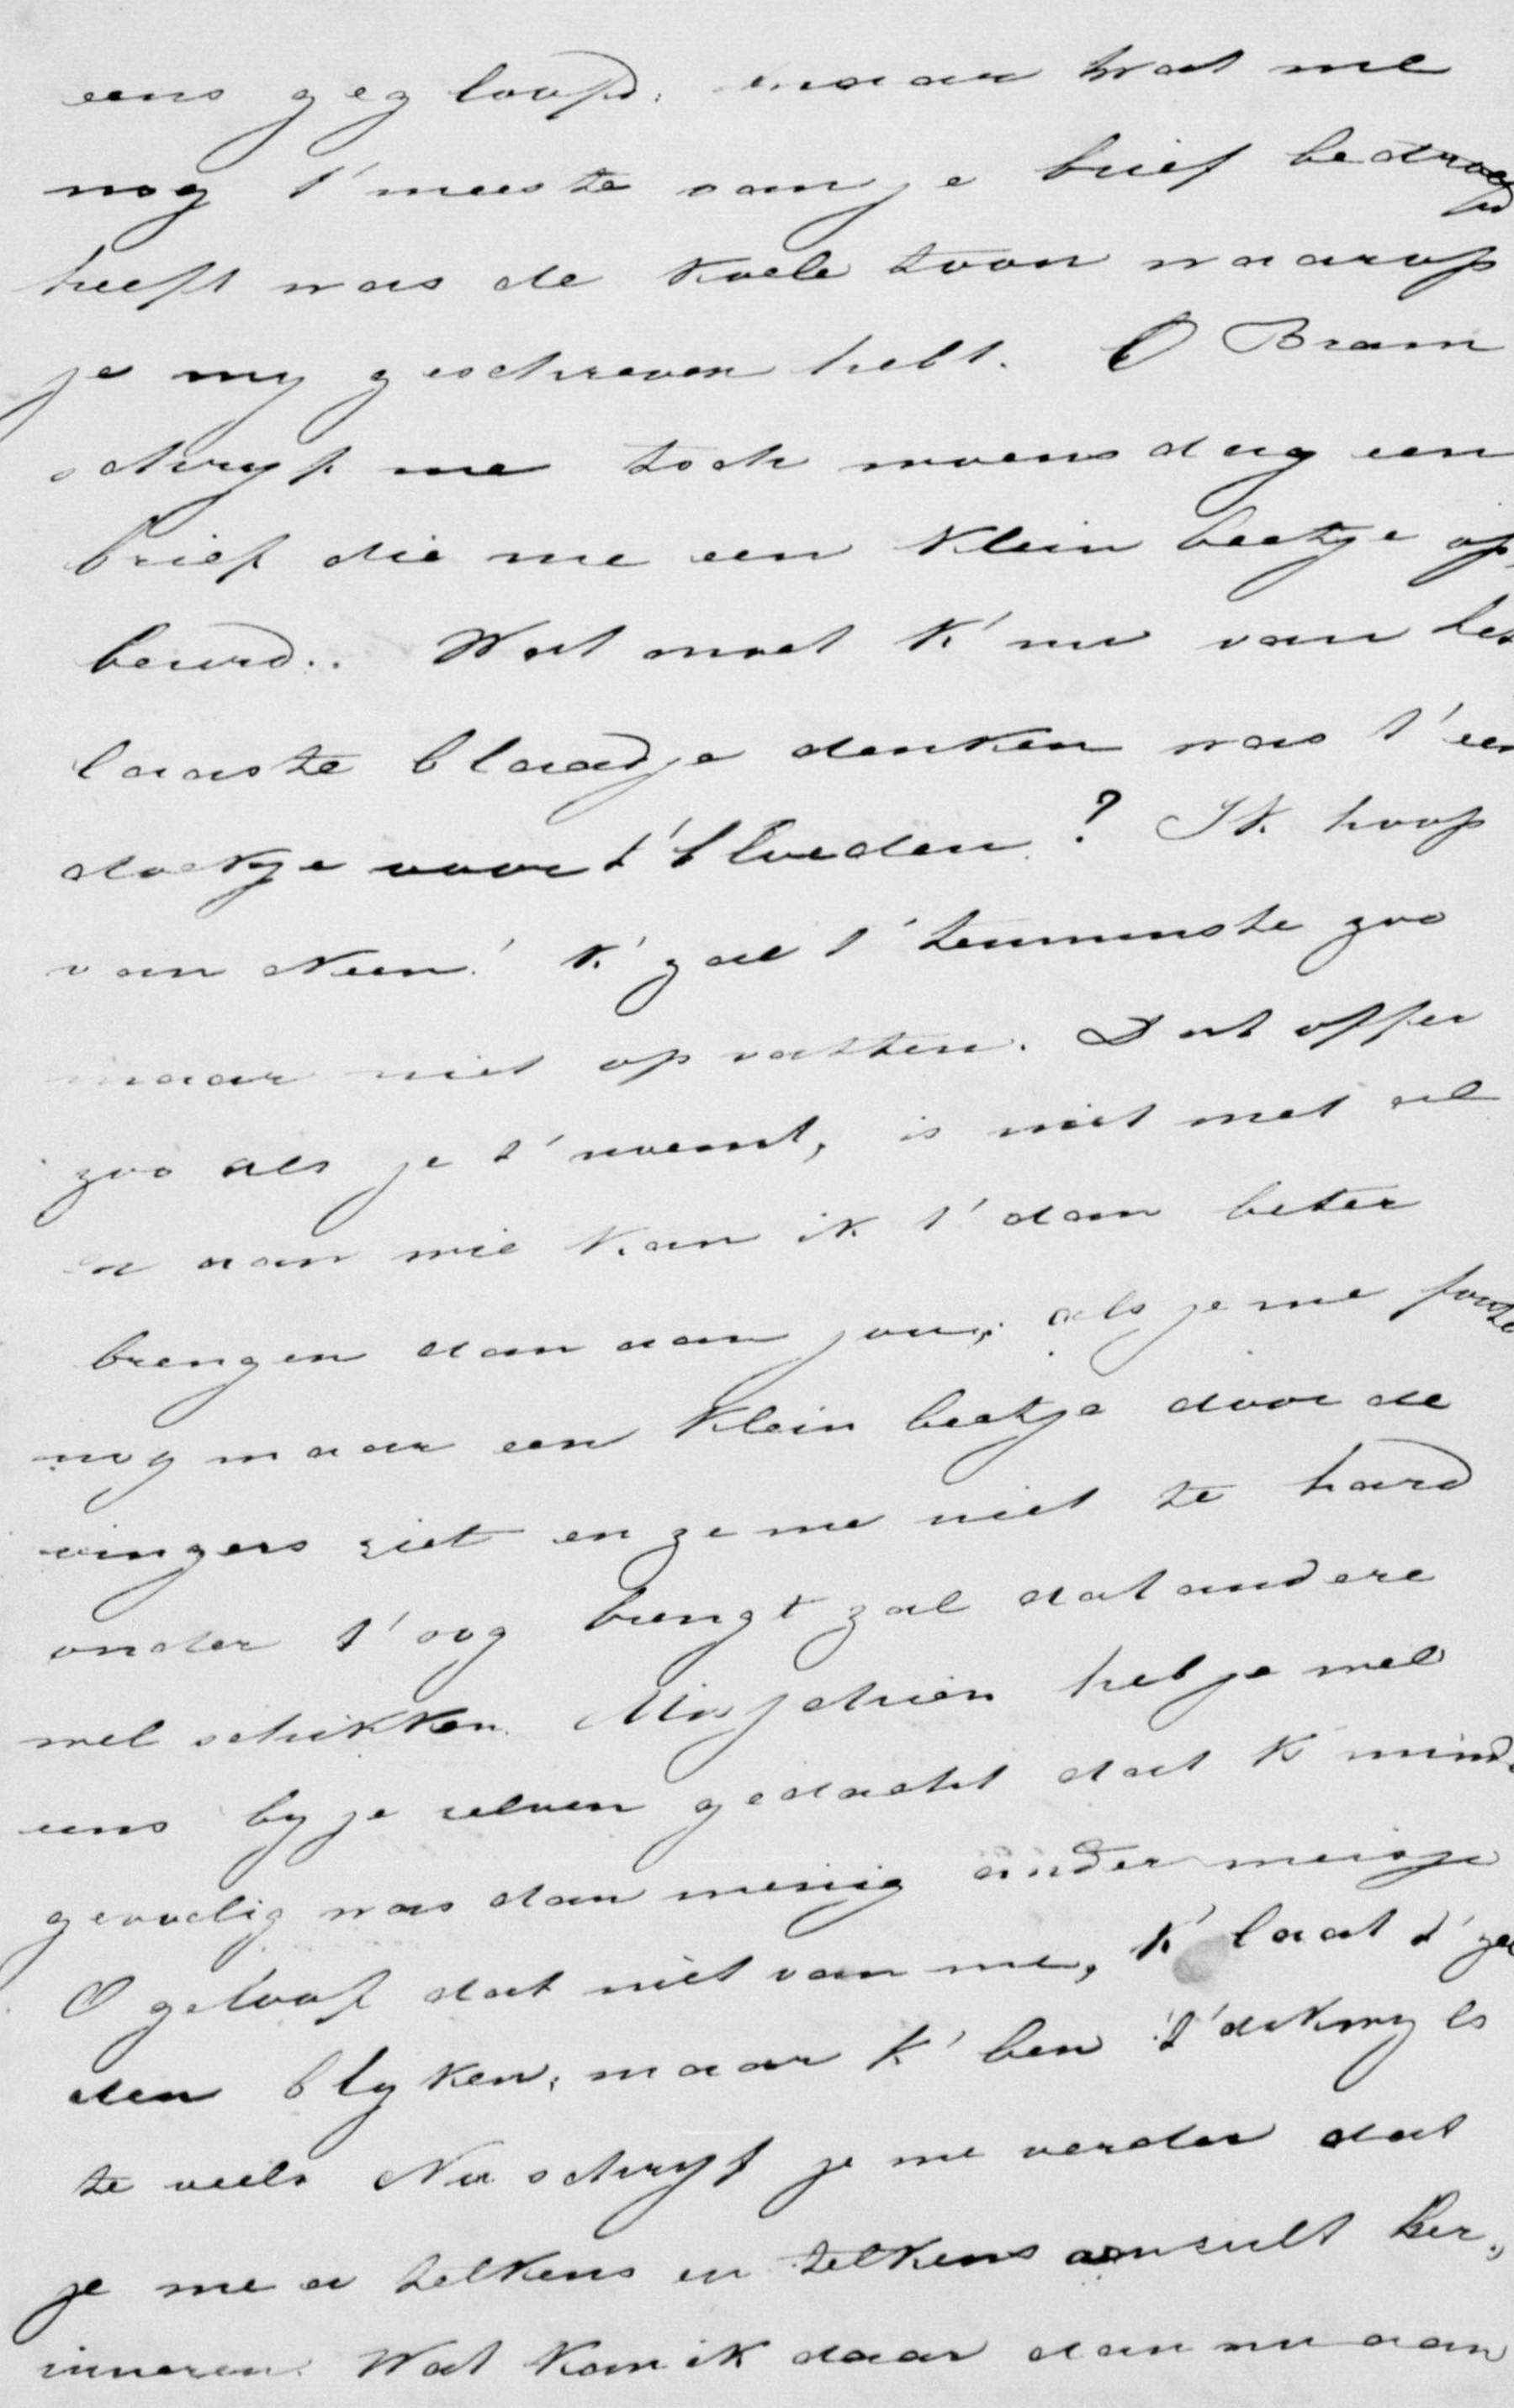 eens gegloofd; maar wat me
nog t' meeste van je brief bedroefd
heeft was de koele toon waarop
je my geschreven hebt. O Bram
schryf me toch woensdag een
brief die me een klein beetje op„
beurd.. Wat moet k' nu van het
laaste blaadje denken was t' een
doekje voor t' bloeden? Ik hoop
van Neen! k' zal t' tenminste zoo
maar niet op vatten. Dat offer
zoo als je t' noemt, is niet met al
en aan wie kan ik t' dan beter
brengen dan aan jou; als je me foute
nog maar een klein beetje door de
vingers ziet en ze me niet te hard
onder t' oog brengt zal dat andere
wel schikken. Misschien heb je wel
eens by je zelven gedacht dat k' mind„
gevoelig was dan menig ander meisje
O geloof dat niet van me, k' laat t' zel
den blyken; maar k' ben t' dikwyls
te veel. Nu schryf je me verder dat
je me er telkens en telkens aan zult her„
inneren. Wat kan ik daar dan nu aan